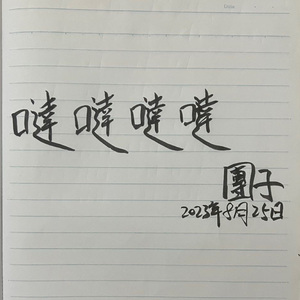 噠噠噠噠
團子
2025年8月25日